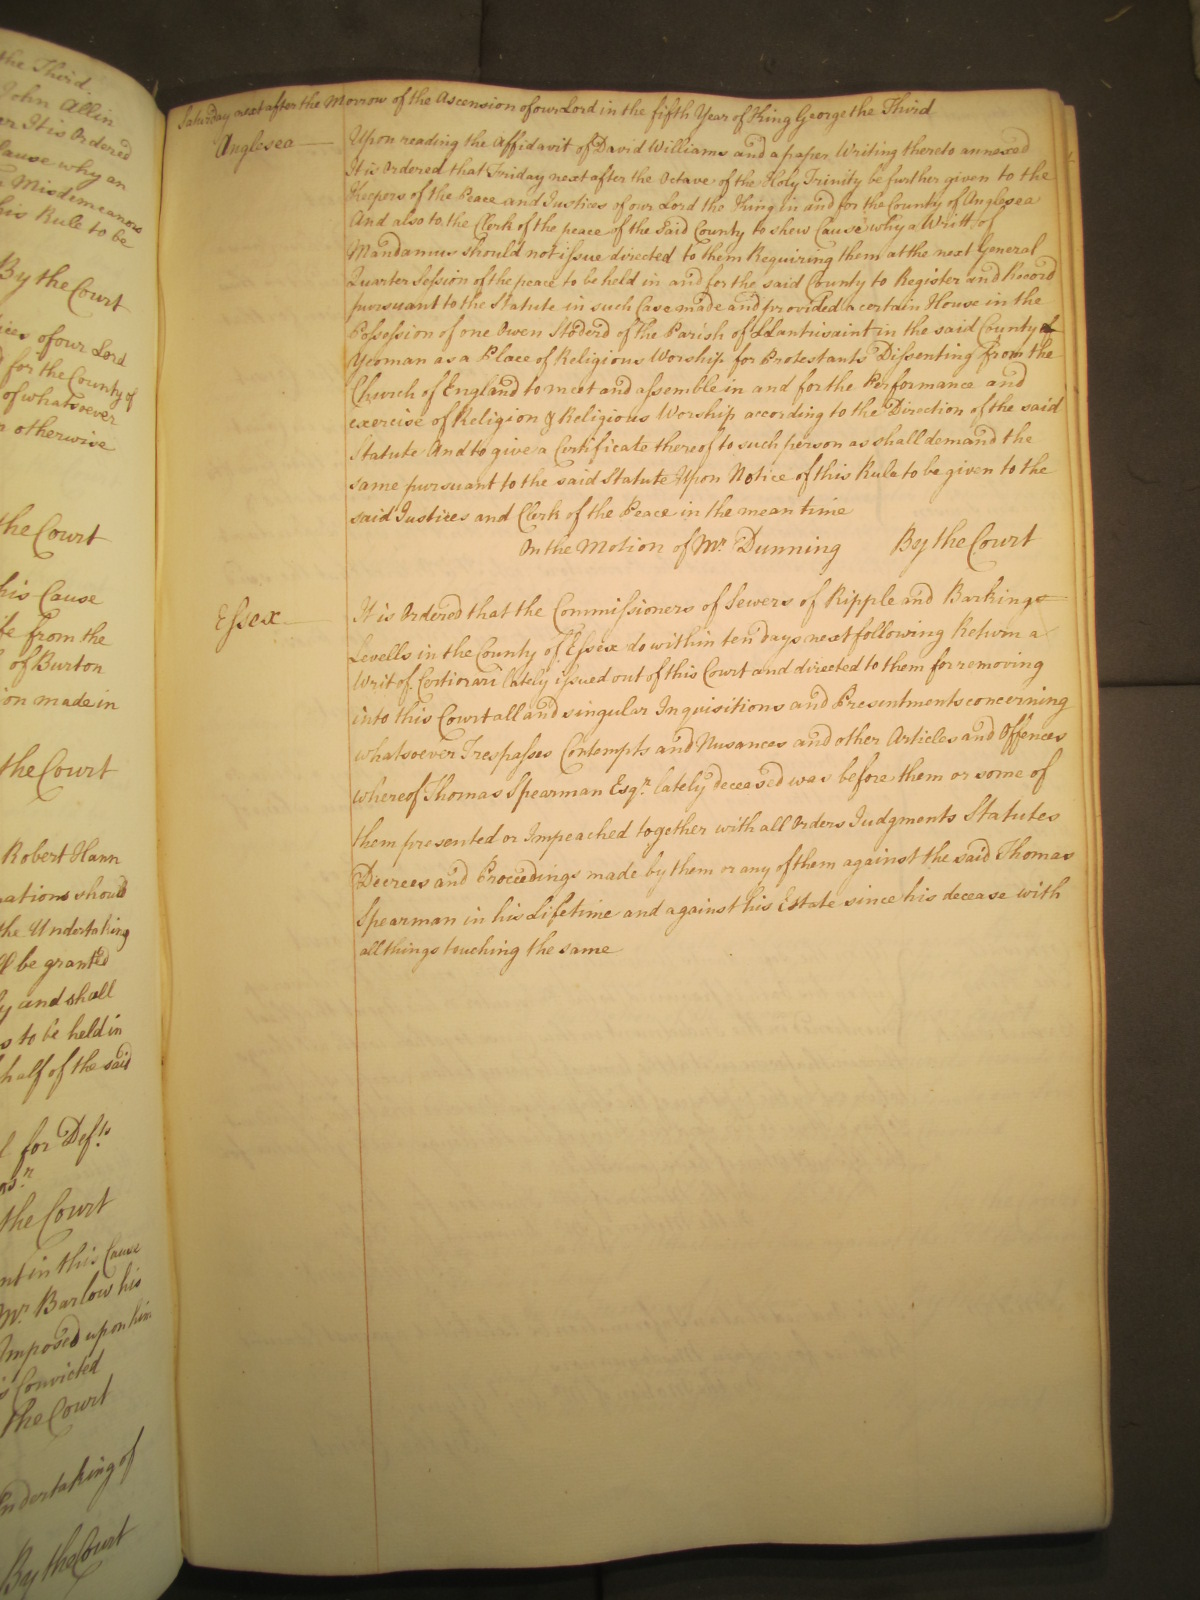 the Third
John Allin
er It is Ordered
Cause why an
Misdemeanors
his Rule to be
By the Court
ices of our Lord
for the County of
of whatsoever
otherwise
the Court
his Cause
from the
of Burton
ion made in
the Court
Robert Hann
ations should
the Undertaking
be granted
and shall
s to be held in
half of the said
for Def.ts
the Court
nt in this Cause
Mr. Barlow his
Imposed upon him
is Convicted
the Court
Undertaking of
By the Court
Saturday next after the Morrow of the Ascension of our Lord in the fifth Year of King George the Third
Anglesea
Upon reading the Affidavit of David Williams and a paper Writing thereto annexed
It is Ordered that Friday next after the Octave of the Holy Trinity be further given to the
Keepers of the Peace and Justices of our Lord the King in and for the County of Anglesea
And also to the Clerk of the peace of the said County to shew Cause why a Writt of
Mandamus should not issue directed to them Requiring them at the next General
Quarter Session of the peace to be held in and for the said County to Register and Record
pursuant to the Statute in such Case made and provided a certain House in the
Possession of one Owen Stoderd of the Parish of Llantrisaint in the said County of
Yeoman as a Place of Religious Worship for Protestants Dissenting from the
Church of England to meet and assemble in and for the Performance and
exercise of Religion & Religious Worship according to the Direction of the said
Statute And to give a Certificate thereof to such person as shall demand the
same pursuant to the said Statute Upon Notice of this Rule to be given to the
said Justices and Clerk of the Peace in the mean time
On the Motion of Mr. Dunning By the Court
Essex
It is Ordered that the Commissioners of Sewers of Ripple and Barking
Levells in the County of Essex do within ten days next following Return a
Writ of Certiorari lately issued out of this Court and directed to them for removing
into this Court all and singular Inquisitions and Presentments concerning
whatsoever Trespasses Contempts and Nusances and other Articles and Offences
whereof Thomas Spearman Esqr. lately deceased was before them or some of
them presented or Impeached together with all Orders Judgments Statutes
Decrees and Proceedings made by them or any of them against the said Thomas
Spearman in his Lifetime and against his Estate since his decease with
all things touching the same